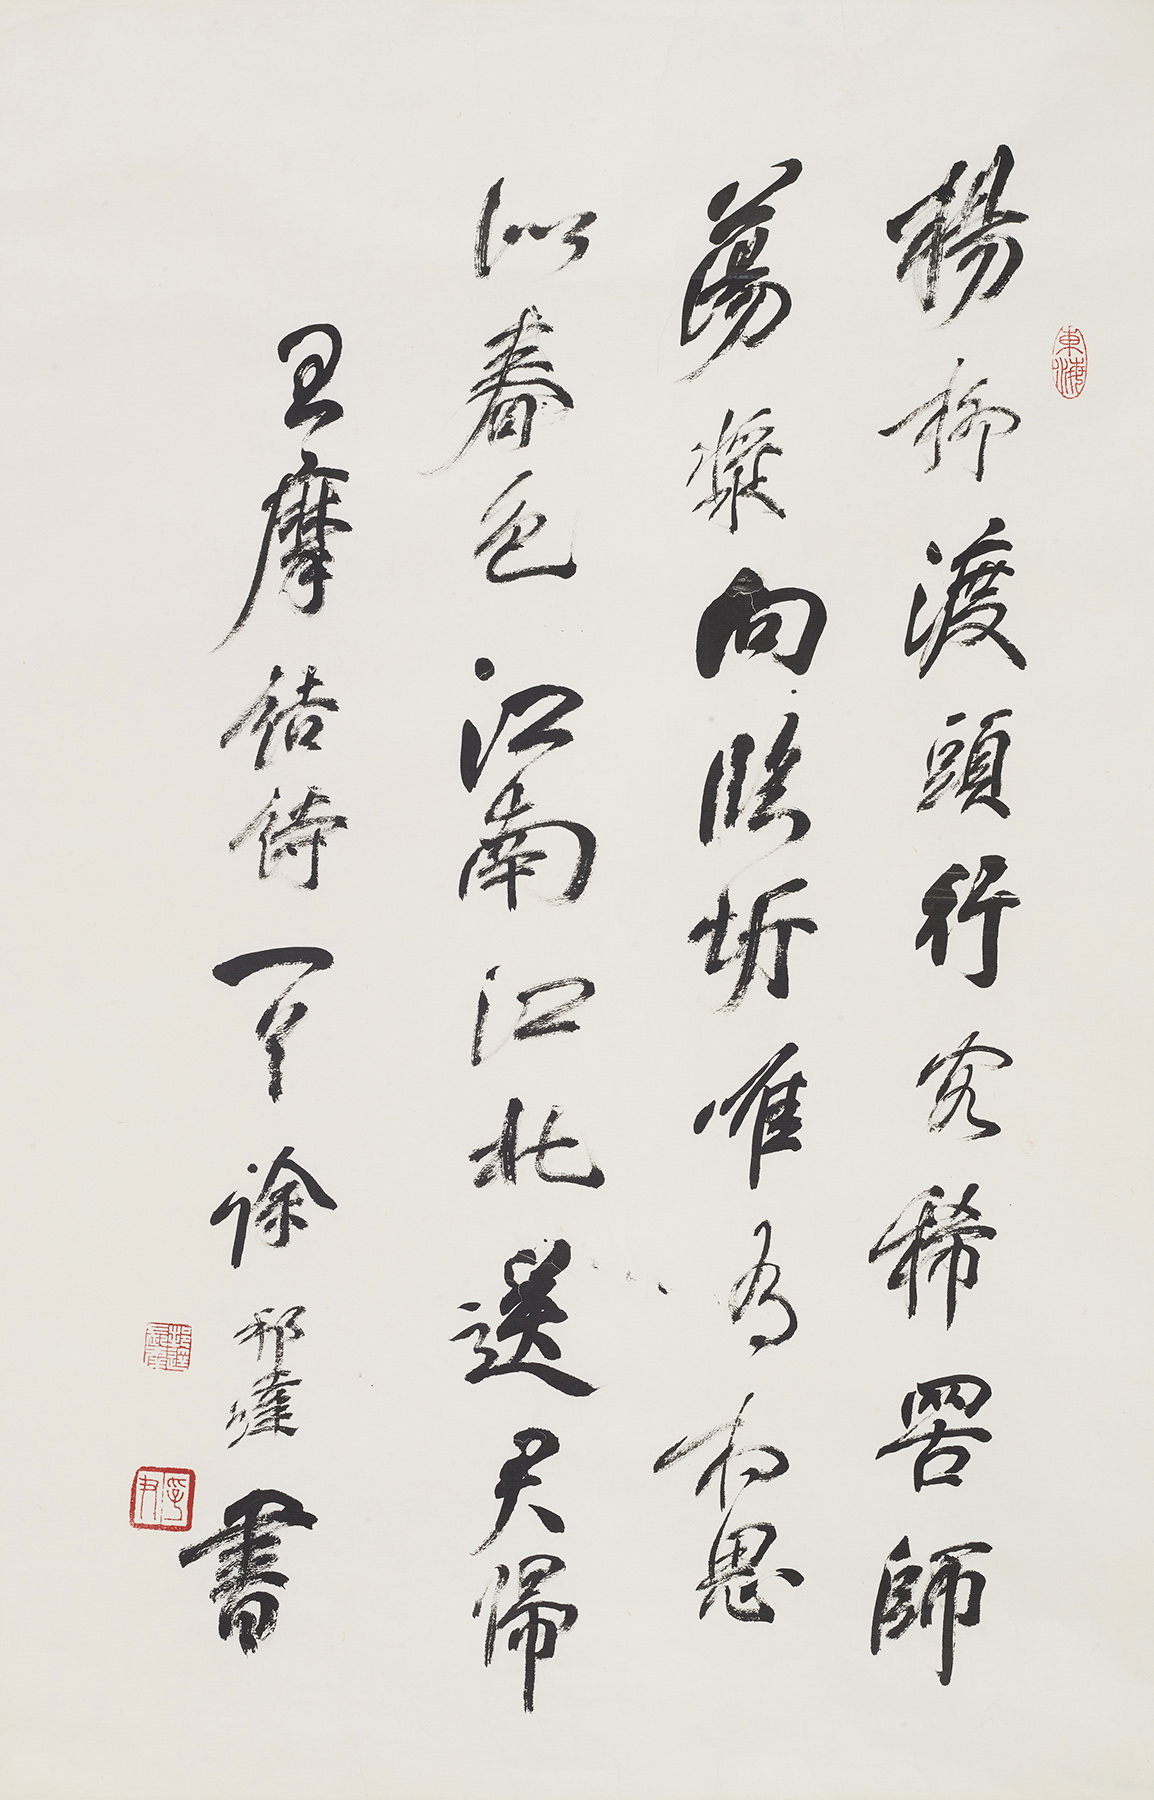 東海
楊柳渡頭行客稀罟師
蕩槳向臨圻唯有相思
似春色江南江北送君歸
王摩詰詩一首徐邦達書
孚尹